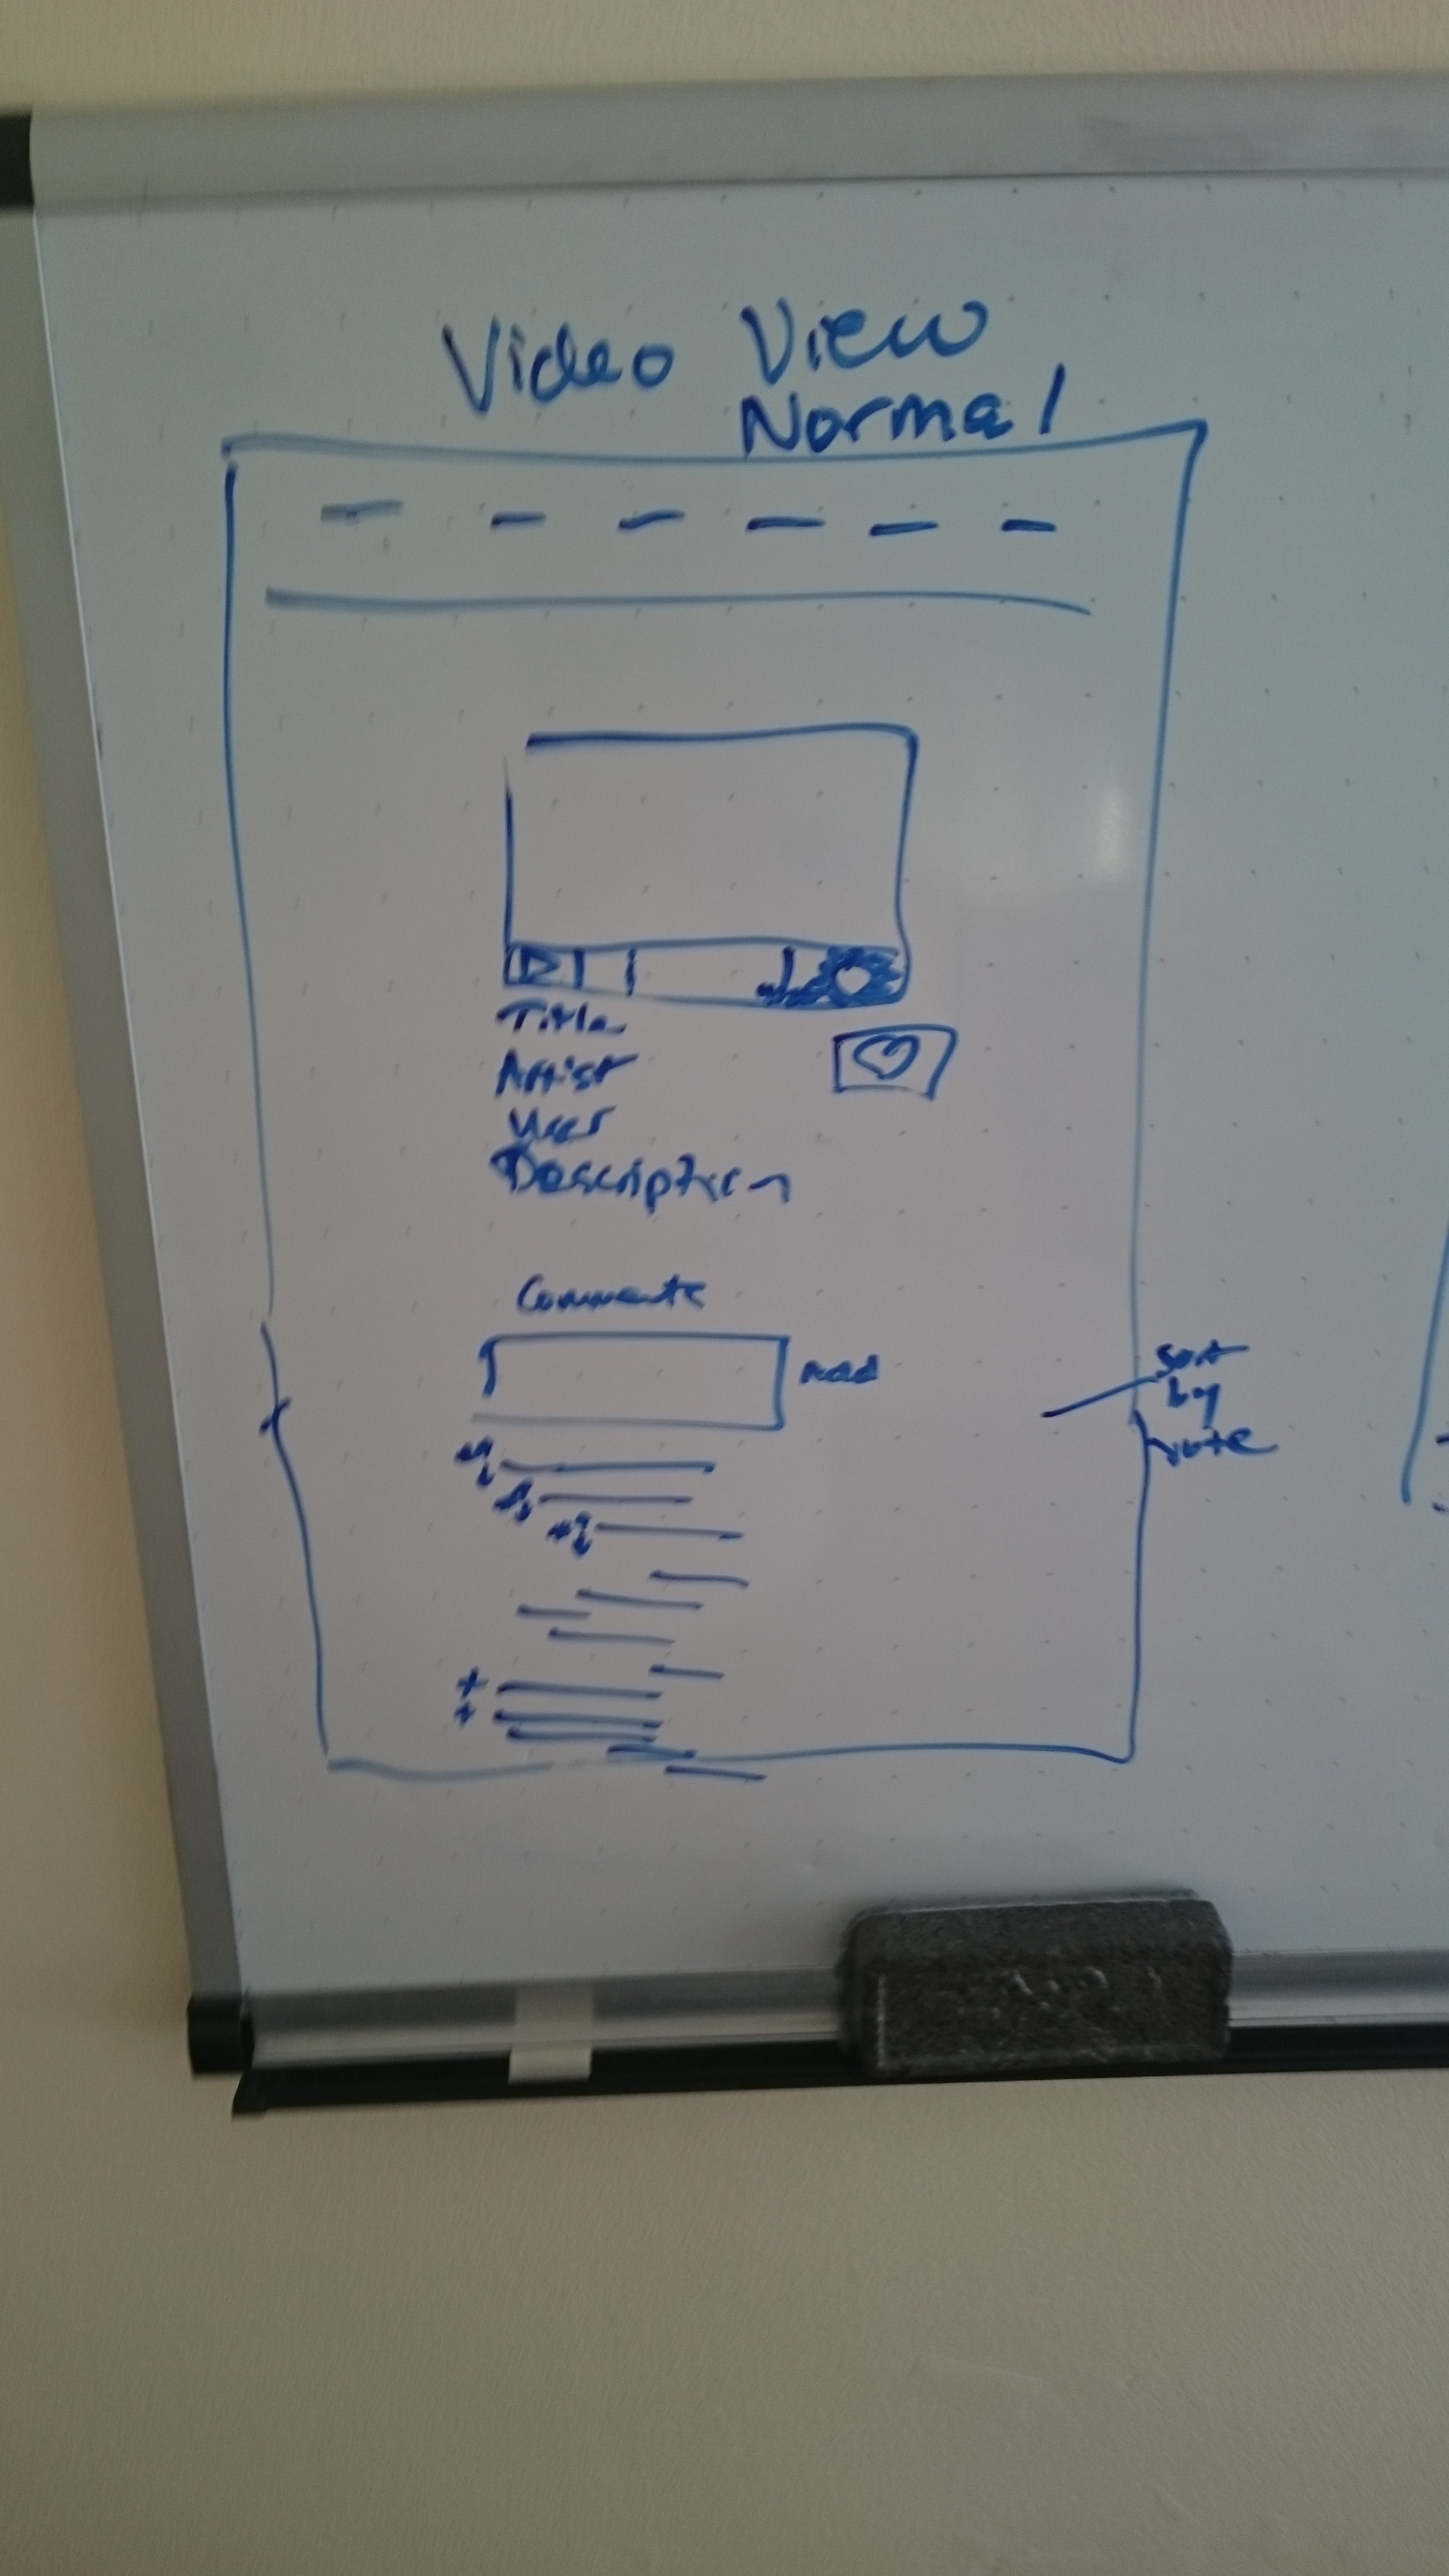 Video View
Normal
Title
Artist
User
Description
Comments
Add
Sort
by
vote